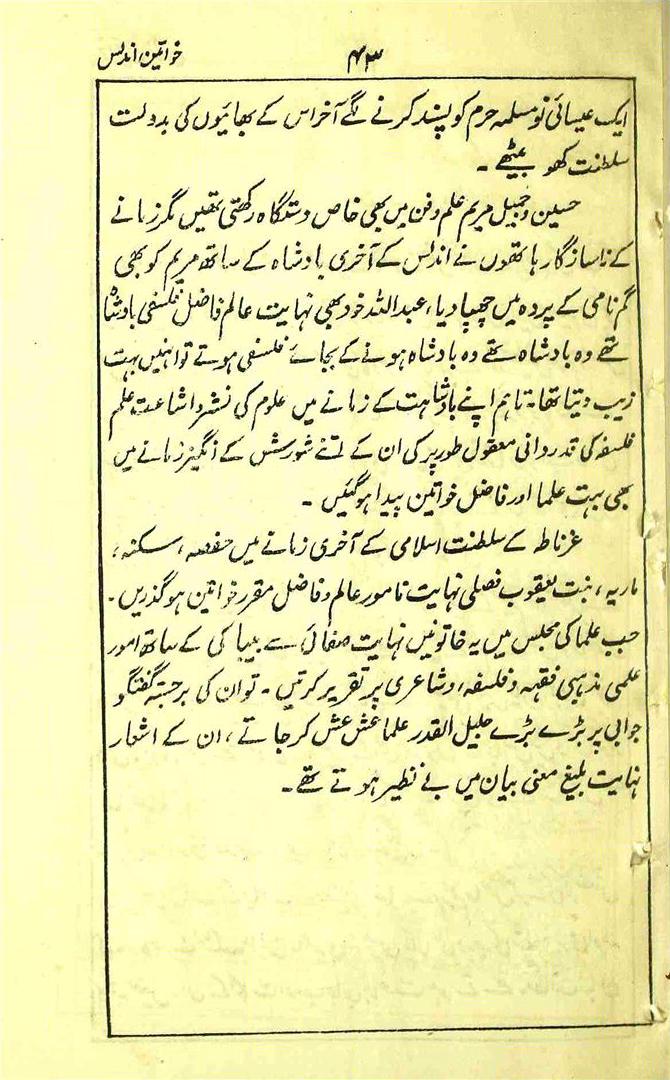 خواتین اندلس
۴۳
ایک عیسائی نو مسلمہ حرم کو پسند کرنے لگے آخر اس کے بھائیوں کی بدولت
سلطنت کھو بیٹھے ۔
حسین وجمیل مریم علم و فن میں بھی خاص دستگاہ رکھتی تھیں مگر زمانے
کے ناسازگار ہاتھوں نے اندلس کے آخری بادشاہ کے ساتھ مریم کو بھی
گم نامی کے پردہ میں چھپا دیا، عبداللہ خود بھی نہایت عالم فاضل فلسفی بادشاہ
تھے وہ بادشاہ تھے وہ بادشاہ ہونے کے بجائے فلسفی ہوتے تو انہیں بہت
زیب دیتا تھا۔ تاہم اپنے بادشاہت کے زمانے میں علوم کی نشر و اشاعت علم
فلسفہ کی قدردانی معقول طور پر کی ان کے لئے شورشں کے انگیز زمانے میں
بھی بہت علما اور فاضل خواتین پیدا ہو گئیں ۔
غرناطہ کے سلطنت اسلامی کے آخری زمانے میں حفصہ، سکنہ،
ماریہ، بنت یعقوب فصلی نہایت نامور عالم و فاضل مقرر خواتین ہو گذریں ۔
جب علما کی مجلس میں یہ خاتونیں نہایت صفائی سے بیباکی کے ساتھ امور
علمی مذہبی فقہہ و فلسفہ، و شاعری پر تقریر کرتیں ۔ تو ان کی برجستہ گفتگو
جوابی پر بڑے بڑے جلیل القدر علما عش عش کر جاتے، ان کے اشعار
نہایت بلیغ معنی بیان میں بے نظیر ہوتے تھے ۔